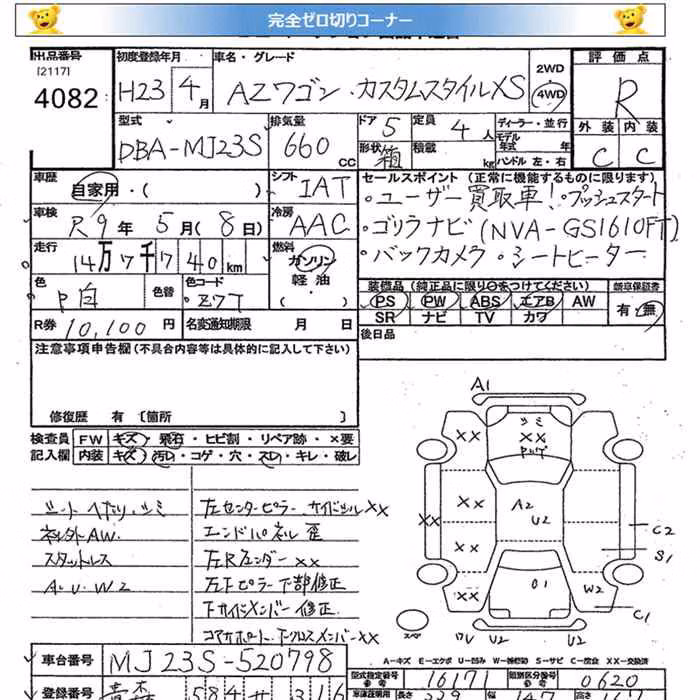 完全ゼロ切りコーナー
出品番号 初度登録年月 車名・グレード 2WD 評価点
[2117]
4082 H23 4月 AZワゴン・カスタムスタイルXS 4WD R
型式 排気量 ドア 5 定員 4人 ディーラー・並行 外装 内装
モデル年式 年
DBA-MJ23S 660cc 形状 箱 積載 kg ハンドル 左・右 C C
車歴 自家用・( ) シフト IAT セールスポイント(正常に機能するものに限ります)
・ユーザー買取車!・プッシュスタート
車検 R9年5月(8日) 冷房 AAC ・ゴリラナビ(NVA-GS1610FT)
走行 14万7千740km 燃料 ガソリン・バックカメラ・シートヒーター
軽油・( )
色 P白 色替 色コード Z7T 装備品(純正品に限り○をつけてください) 新車保証書
PS PW ABS エアB AW 有・無
SR ナビ TV カワ
R券 10,100円 名変通知期限 月 日 後日品
注意事項申告欄(不具合内容等は具体的に記入して下さい)
修復歴 有 [箇所 ]
検査員記入欄 FW キズ・飛石・ヒビ割・リペア跡・×要
内装 キズ・汚レ・コゲ・穴・スレ・キレ・破レ
シートヘタリ・シミ 左センターピラー サイドシルXX
社外AW. エンドパネル歪
スタットレス 左Rフェンダーxx
A.U.W2 左Fピラー下部修正
下サイドメンバー修正
コアサポート.F クロスメンバーXX
A1
XX
XX
XX
XX
XX
XX
A2
U2
C2
S1
U1
W2
C1
スペア
U2 U2
A-キズ E-エクボ U-凹み W-補修跡 S-サビ C-腐食 XX-交換済
車台番号 MJ23S-520798 型式指定番号 16171 類別区分番号 0620
登録番号 青森 584 316 長さ 339 幅 147